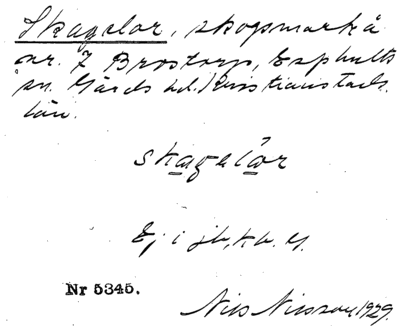 Skagelor, skogsmark å
nr. 7 Brostorp, Esphults
sn. Gärds hd. Kristianstads
län.
skagelor
Ej i jb, kb. el.
Nr 5345.
Nils Nilsson 1929.